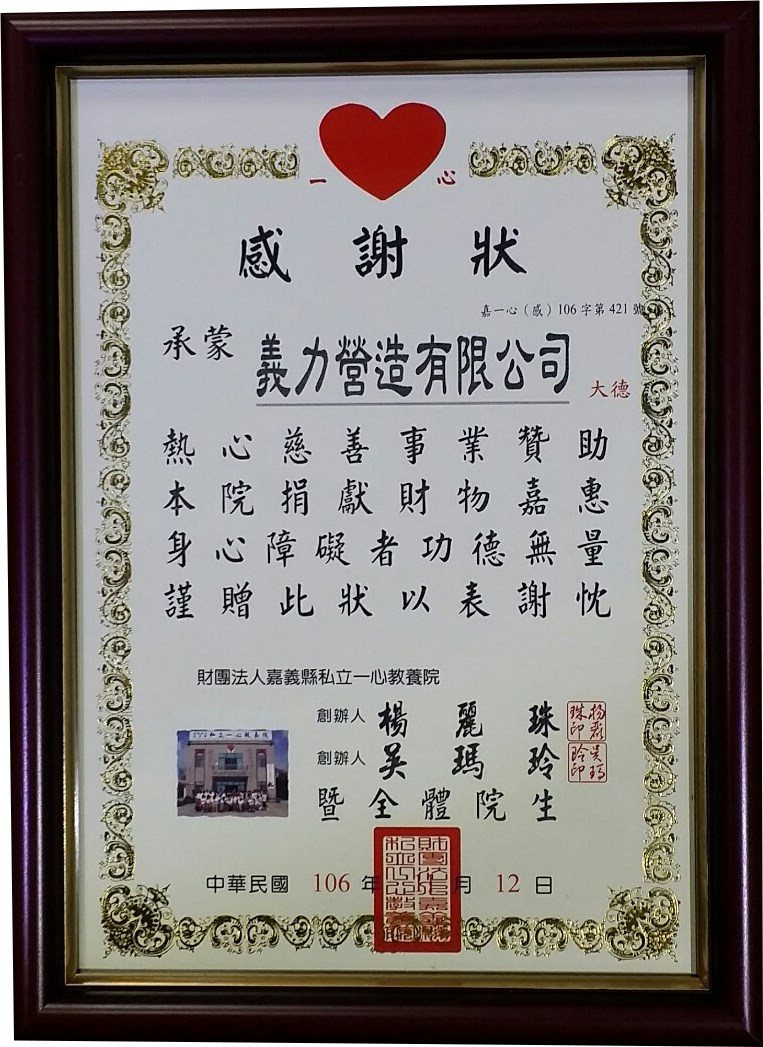 一 心
感謝狀
嘉一心（感）106字第421號
承蒙 義力營造有限公司 大德
熱心慈善事業贊助
本院捐獻財物嘉惠
身心障礙者功德無量
謹贈此狀以表謝忱
財團法人嘉義縣私立一心教養院
創辦人 楊麗珠
創辦人 吳瑪玲
暨全體院生
中華民國 106 年 月 12 日